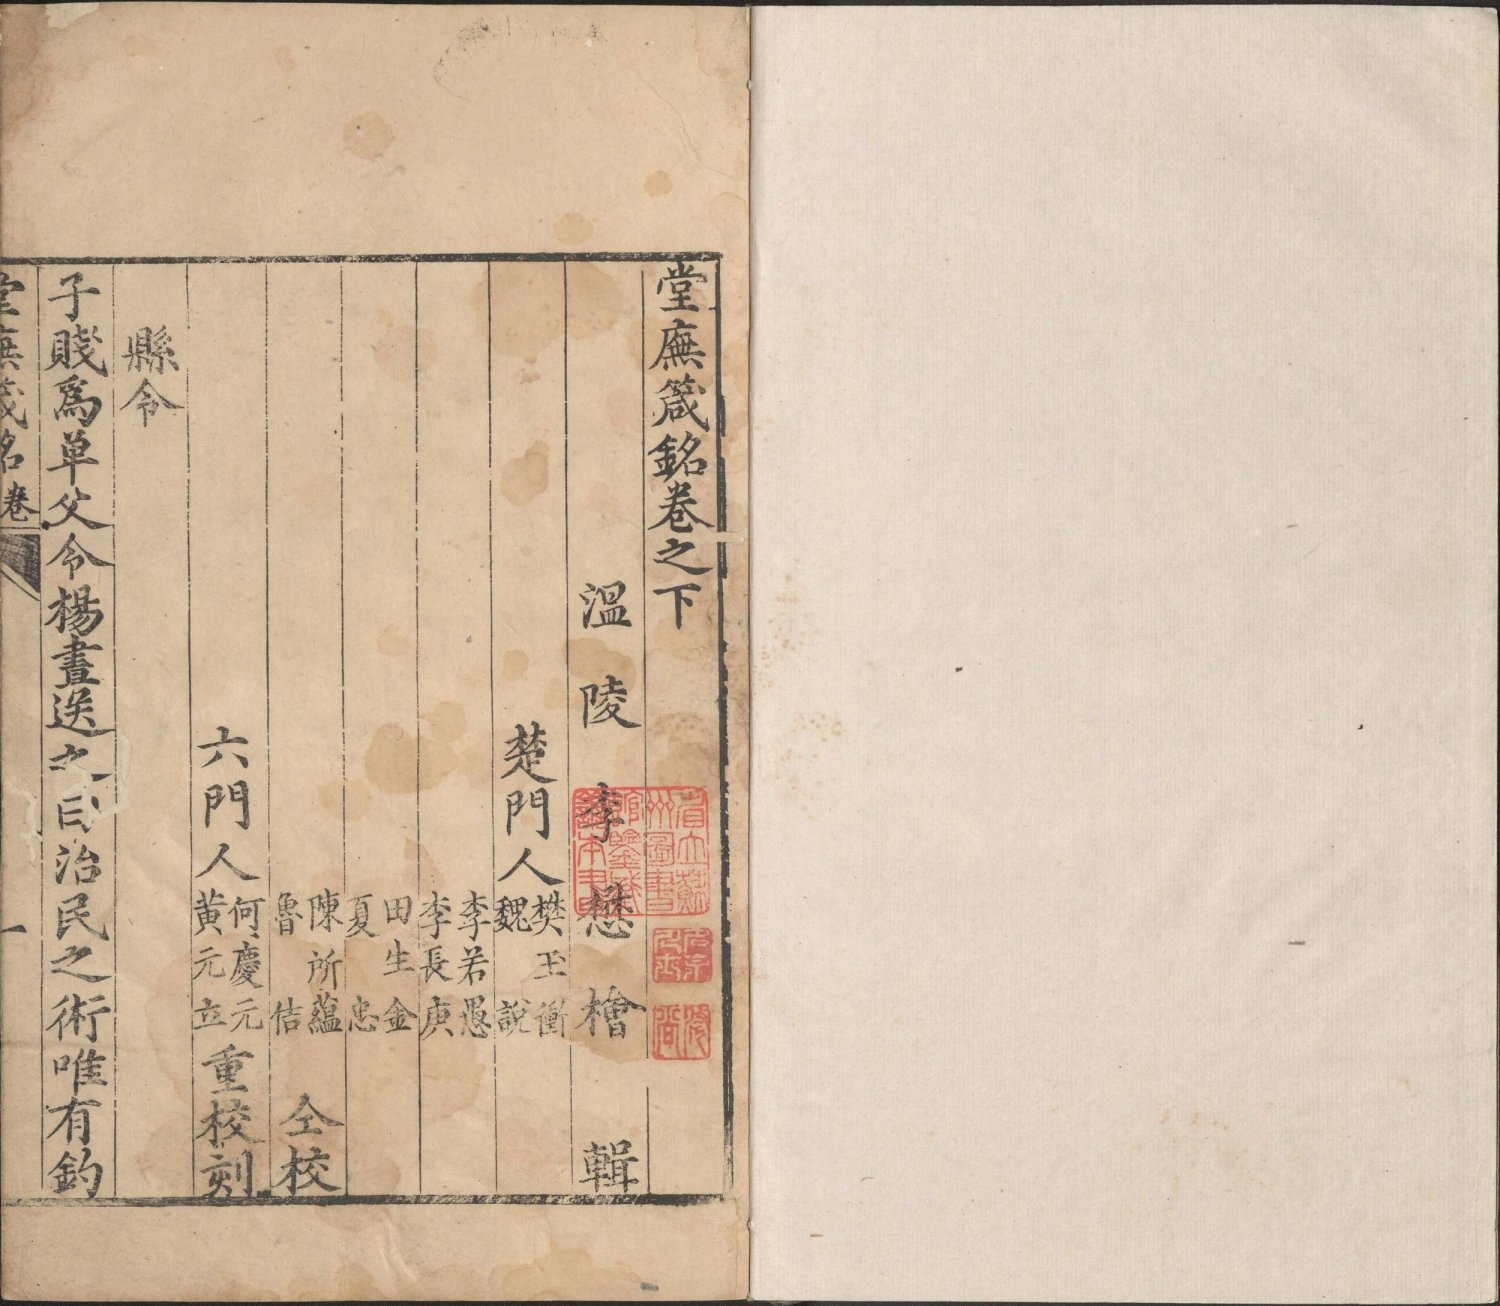 堂廡箴銘卷之下
溫陵李懋檜輯
楚門人樊玉衝
魏說
李若愚
李長庚
田生金
夏忠
陳所蘊
魯佶
仝校
六門人何慶元
黃元立
重校刻
縣令
子賤爲單父令楊晝送之曰治民之術唯有釣
堂廡箴銘卷
一
省立蘇
州圖書
館鑒藏
善本書